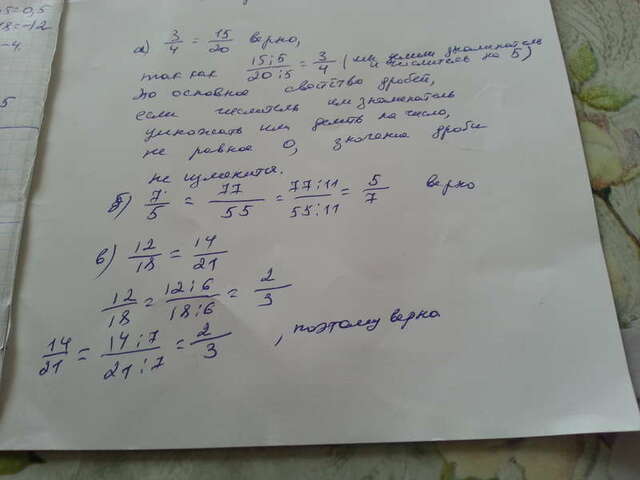 5 = 0,5
18 = -12
-4
5
а) 3/4 = 15/20 верно,
так как 15:5/20:5 = 3/4 ( знаменатель
и числитель на 5)
по основное свойство дробей,
если числитель или знаменатель
умножать или делить на число,
не равное 0, значение дроби
не изменится.
б) 7/5 = 77/55 = 77:11/55:11 = 5/7 верно
в) 12/18 = 14/21
12/18 = 12:6/18:6 = 2/3
14/21 = 14:7/21:7 = 2/3 , поэтому верно